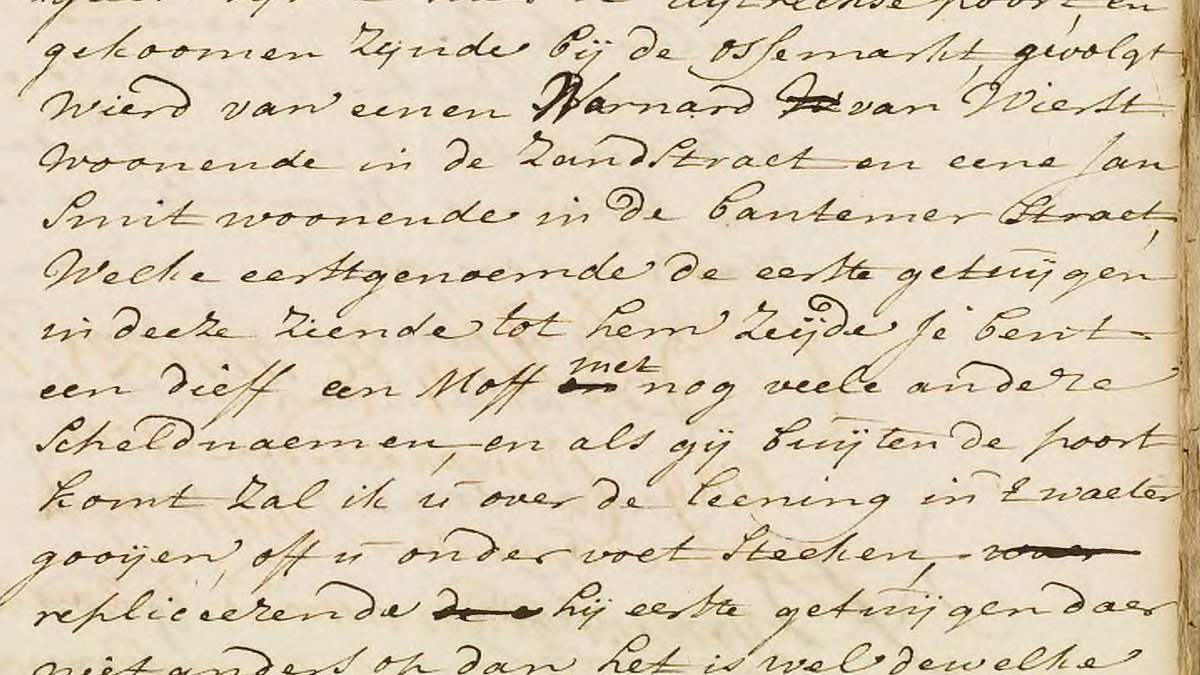 uijtrechse poort, en
gekoomen zijnde bij de ossemarkt, gevolgt
wierd van eenen Warnard van Wierst
woonende in de Zandstraet en eene Jan
Smit woonende in de bantemer straet,
Welke eerstgenoemde de eerste getuijgen
in deeze ziende tot hem zeijde je bent
een dieff een Moff met nog veele andere
Scheldnaemen, en als gij buijten de poort
komt zal ik u over de leening in 't waeter
gooijen, off u onder voet steeken,
repliceerende hij eerste getuijgen daer
niet anders op dan het is wel dewelke